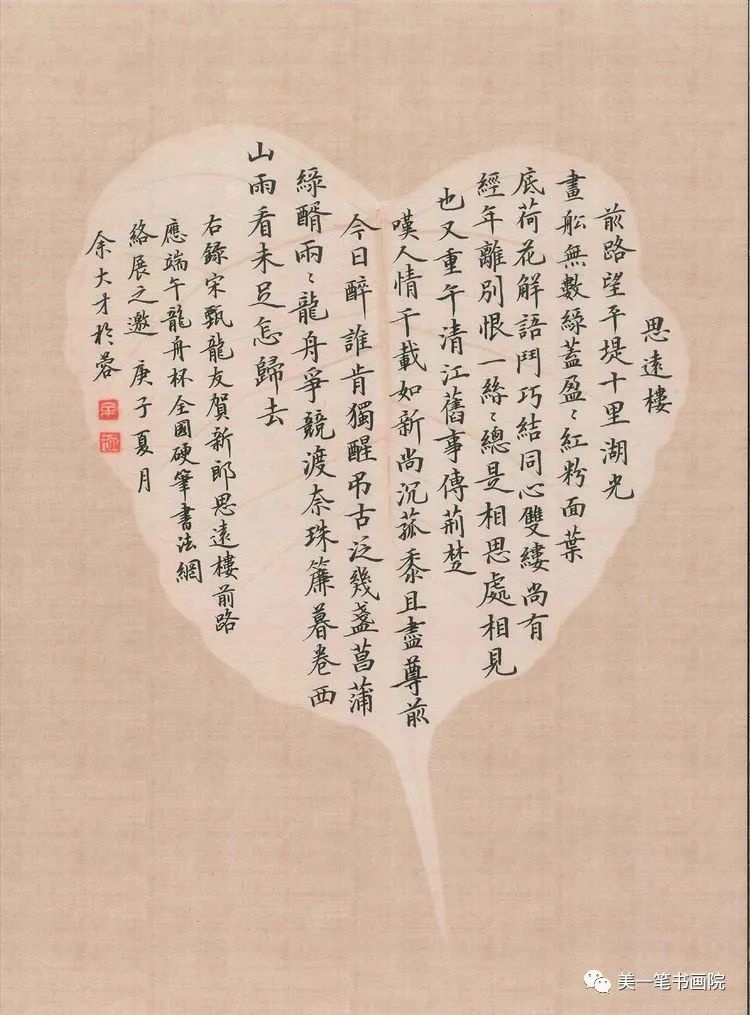 思遠樓
前路望平堤十里湖光
畫舩無數綠蓋盈〻紅粉面葉
底荷花解語鬥巧結同心雙縷尚有
經年離別恨一絲〻總是相思處相見
也又重午清江舊事傳荊楚
嘆人情千載如新尚沉菰黍且盡尊前
今日醉誰肯獨醒弔古泛幾盞菖蒲
綠醑兩〻龍舟爭競渡奈珠簾暮卷西
山雨看未足怎歸去
右錄宋甄龍友賀新郎思遠樓前路
應端午龍舟杯全國硬筆書法網
絡展之邀 庚子夏月
余大才於蓉
美一笔书画院